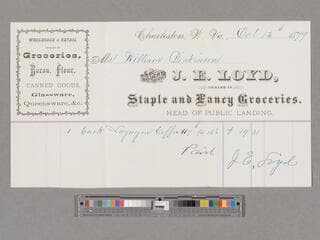 WHOLESALE & RETAIL
Groceries,
Bacon, Flour,
CANNED GOODS,
Glassware,
Queensware, &c.
Charleston, W. Va., Oct 13th 1879
Mr William Dickinson
J. E. LOYD,
DEALER IN
Staple and Fancy Groceries.
HEAD OF PUBLIC LANDING.
1 Sack Coffee $ 19 21
Paid
J. E. Loyd